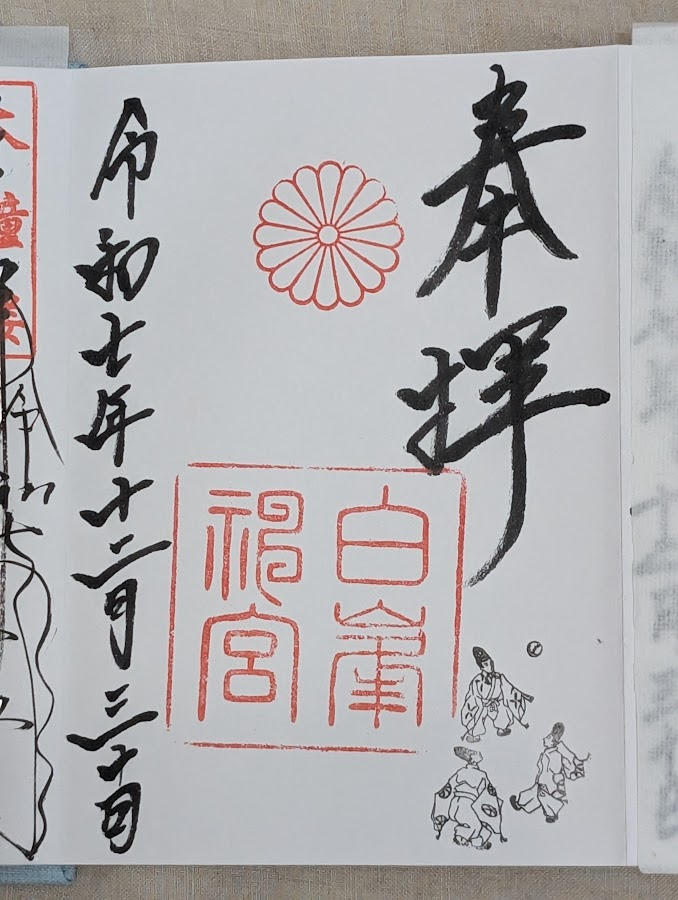 奉拝
白峯
神宮
令和七年十二月三十日